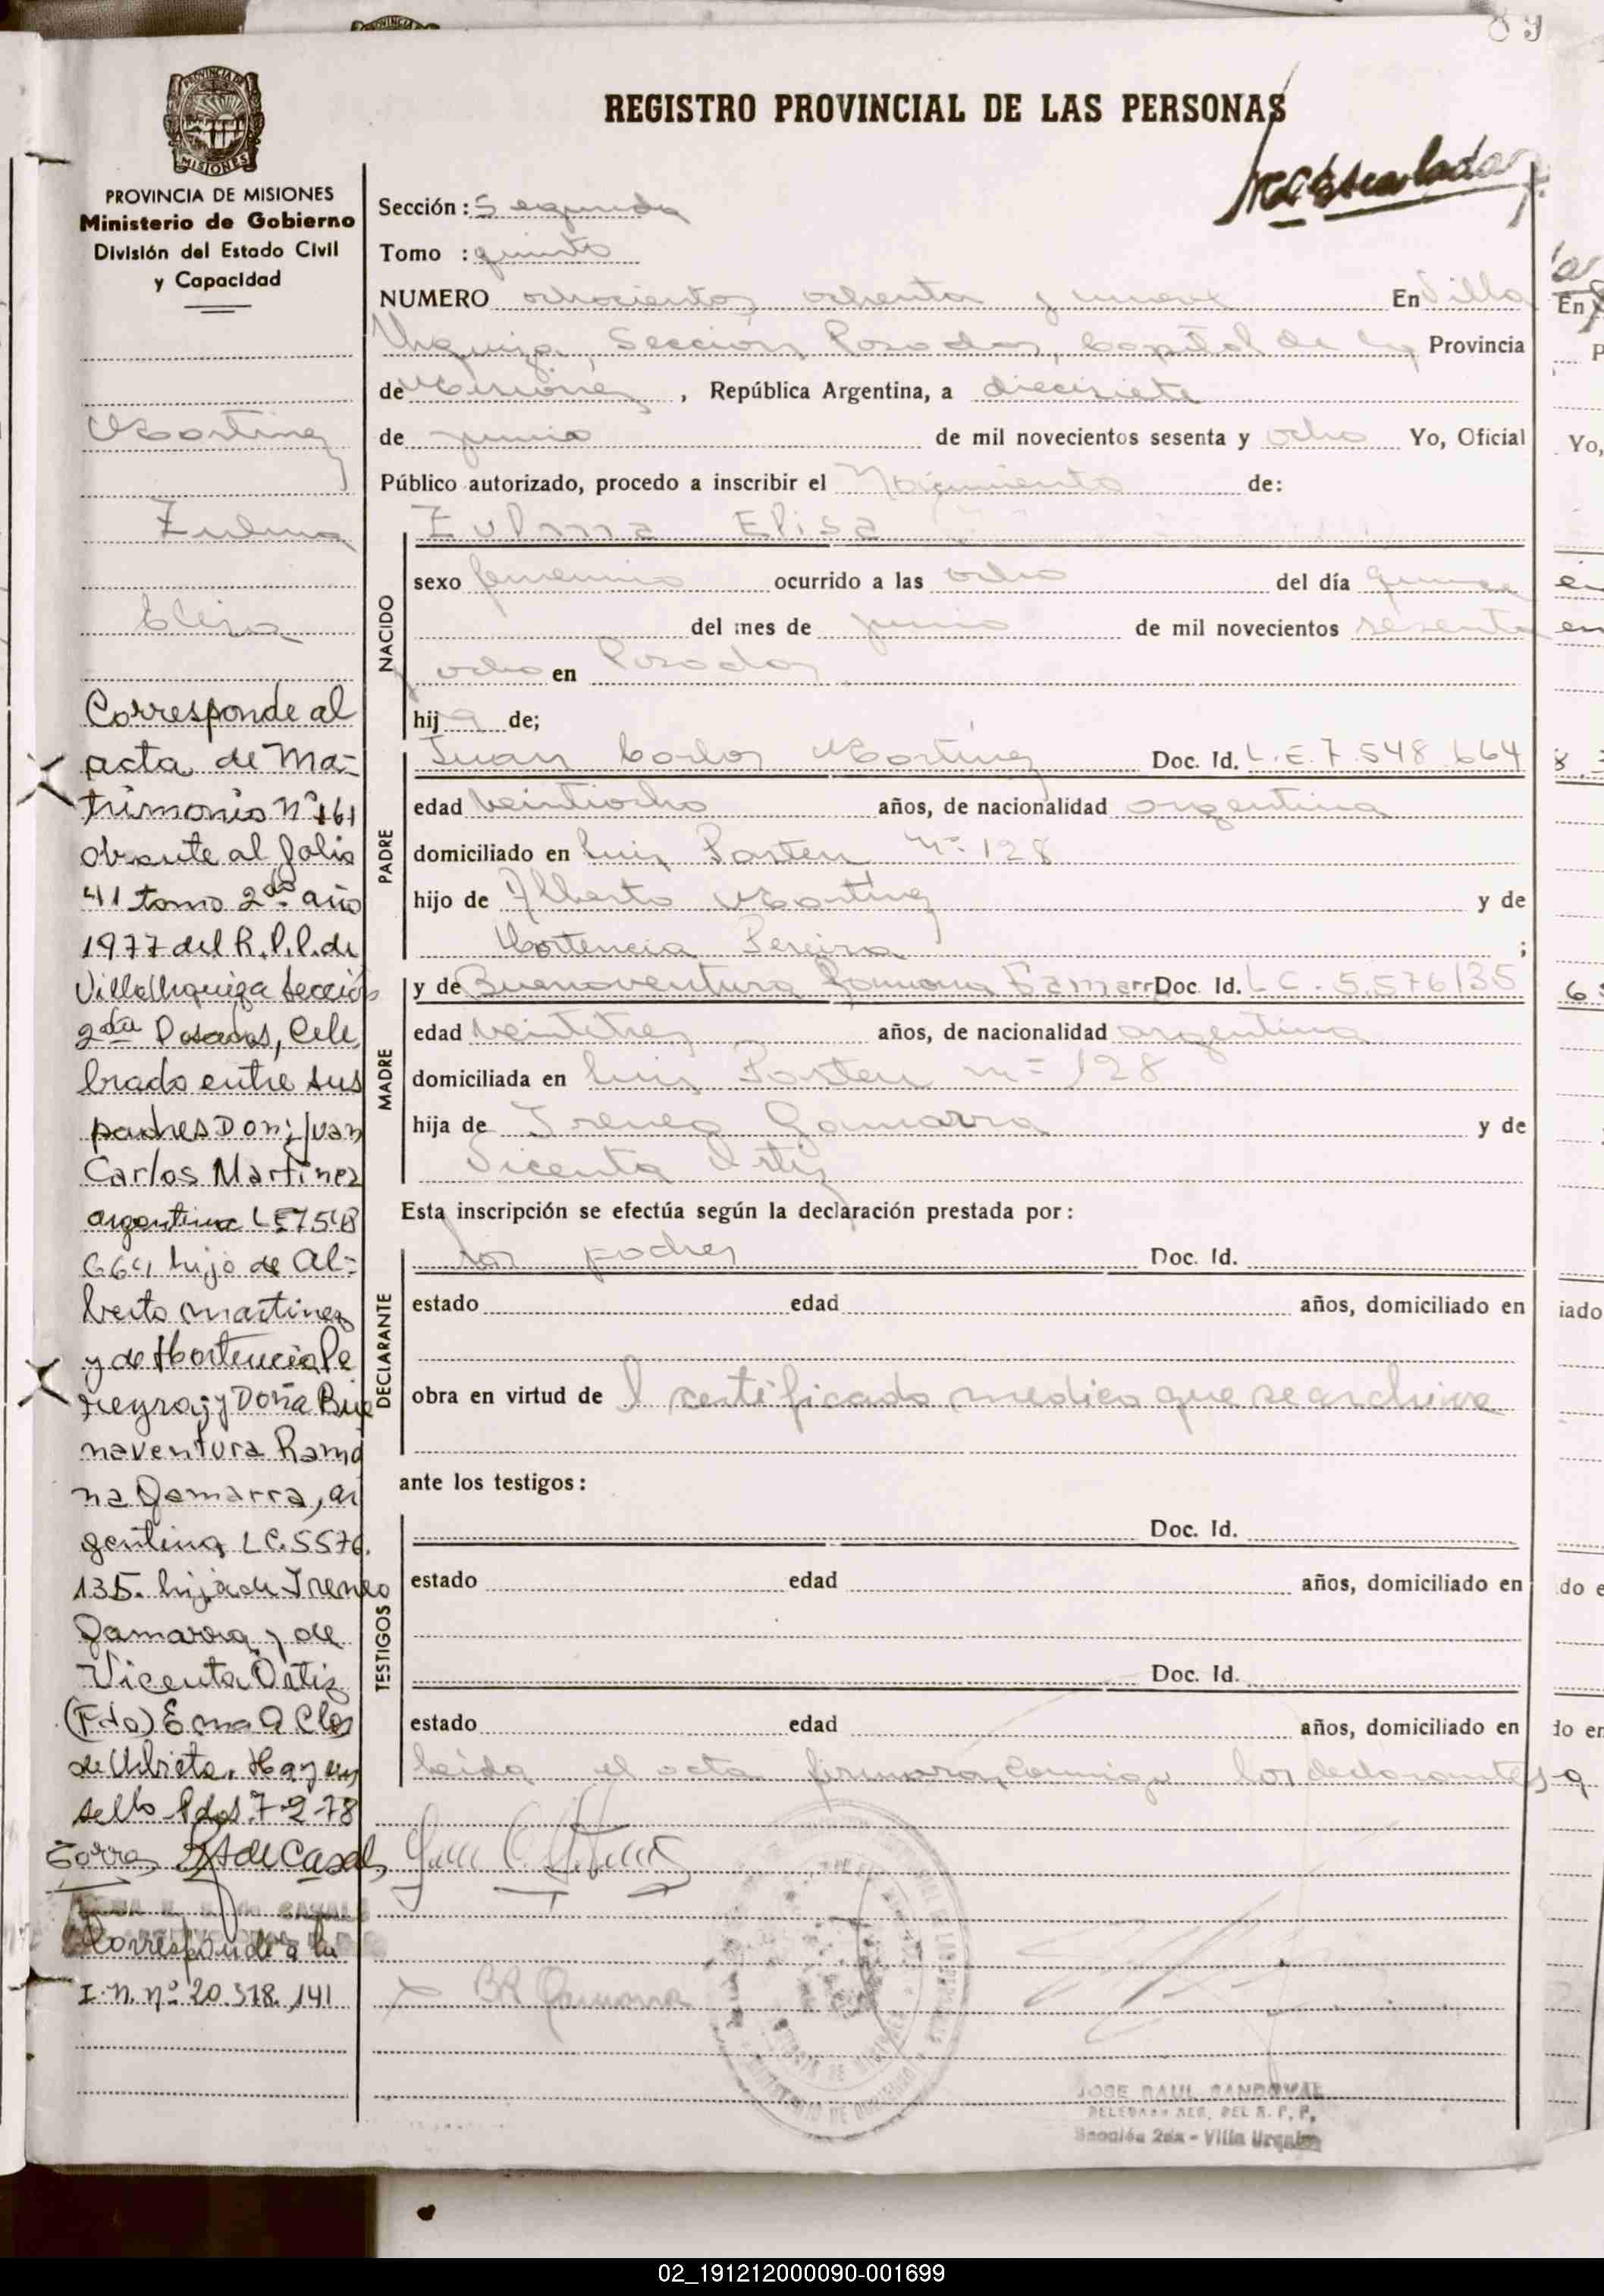 89
REGISTRO PROVINCIAL DE LAS PERSONAS
PROVINCIA DE MISIONES
Ministerio de Gobierno
División del Estado Civil
y Capacidad
Martinez
Zulma
Elisa
Corresponde al
acta de Ma-
trimonio Nº 161
obrante al folio
41 tomo 2do año
1977 del R.P.P. de
Villa Urquiza Sección
2da Posadas, Cele
brado entre sus
padres Don: Juan
Carlos Martinez
argentino LE 7548
664 hijo de Al-
berto Martinez
y de Hortencia Pe
reyra; y Doña Bue
naventura Ramo
na Gamarra, ar
gentina LC. 5576.
135. hija de Ireneo
Gamarra y de
Vicenta Ortiz
(Fdo) Ema
de Urbieta. Hay un
sello Pdas. 7-2-78
Corresponde a la
I.N. Nº 20.318.141
Sección: Segunda
Tomo : quinto
NUMERO ochocientos ochenta y nueve En Villa
Urquiza, Sección Posadas, Capital de la Provincia
de Misiones, República Argentina, a diecisiete
de junio de mil novecientos sesenta y ocho Yo, Oficial
Público autorizado, procedo a inscribir el Nacimiento de:
NACIDO
Zulma Elisa
sexo femenino ocurrido a las ocho del día quince
del mes de junio de mil novecientos sesenta
y ocho en Posadas
hija de;
PADRE
Juan Carlos Martinez Doc. Id. L.E. 7.548.664
edad veintiocho años, de nacionalidad argentina
domiciliado en Luis Pasteu Nº 128
hijo de Alberto Martinez y de
Hortencia Pereira ;
MADRE
y de Buenaventura Ramona Gamarr Doc. Id. L C. 5.576135
edad veintitres años, de nacionalidad argentina
domiciliada en Luis Pasteu nº 128
hija de Ireneo Gamarra y de
Vicenta Ortiz
Esta inscripción se efectúa según la declaración prestada por:
DECLARANTE
los padres Doc. Id.
estado edad años, domiciliado en
obra en virtud de l certificado medico que se archiva
ante los testigos:
TESTIGOS
Doc. Id.
estado edad años, domiciliado en
Doc. Id.
estado edad años, domiciliado en
Leida el acta firmaron conmigo los declarantes
BR Gamarra
JOSE RAUL SANDOVAL
DELEGADO SEC. DEL R. P. P.
Sección 2da - Villa Urquiza
02_191212000090-001699